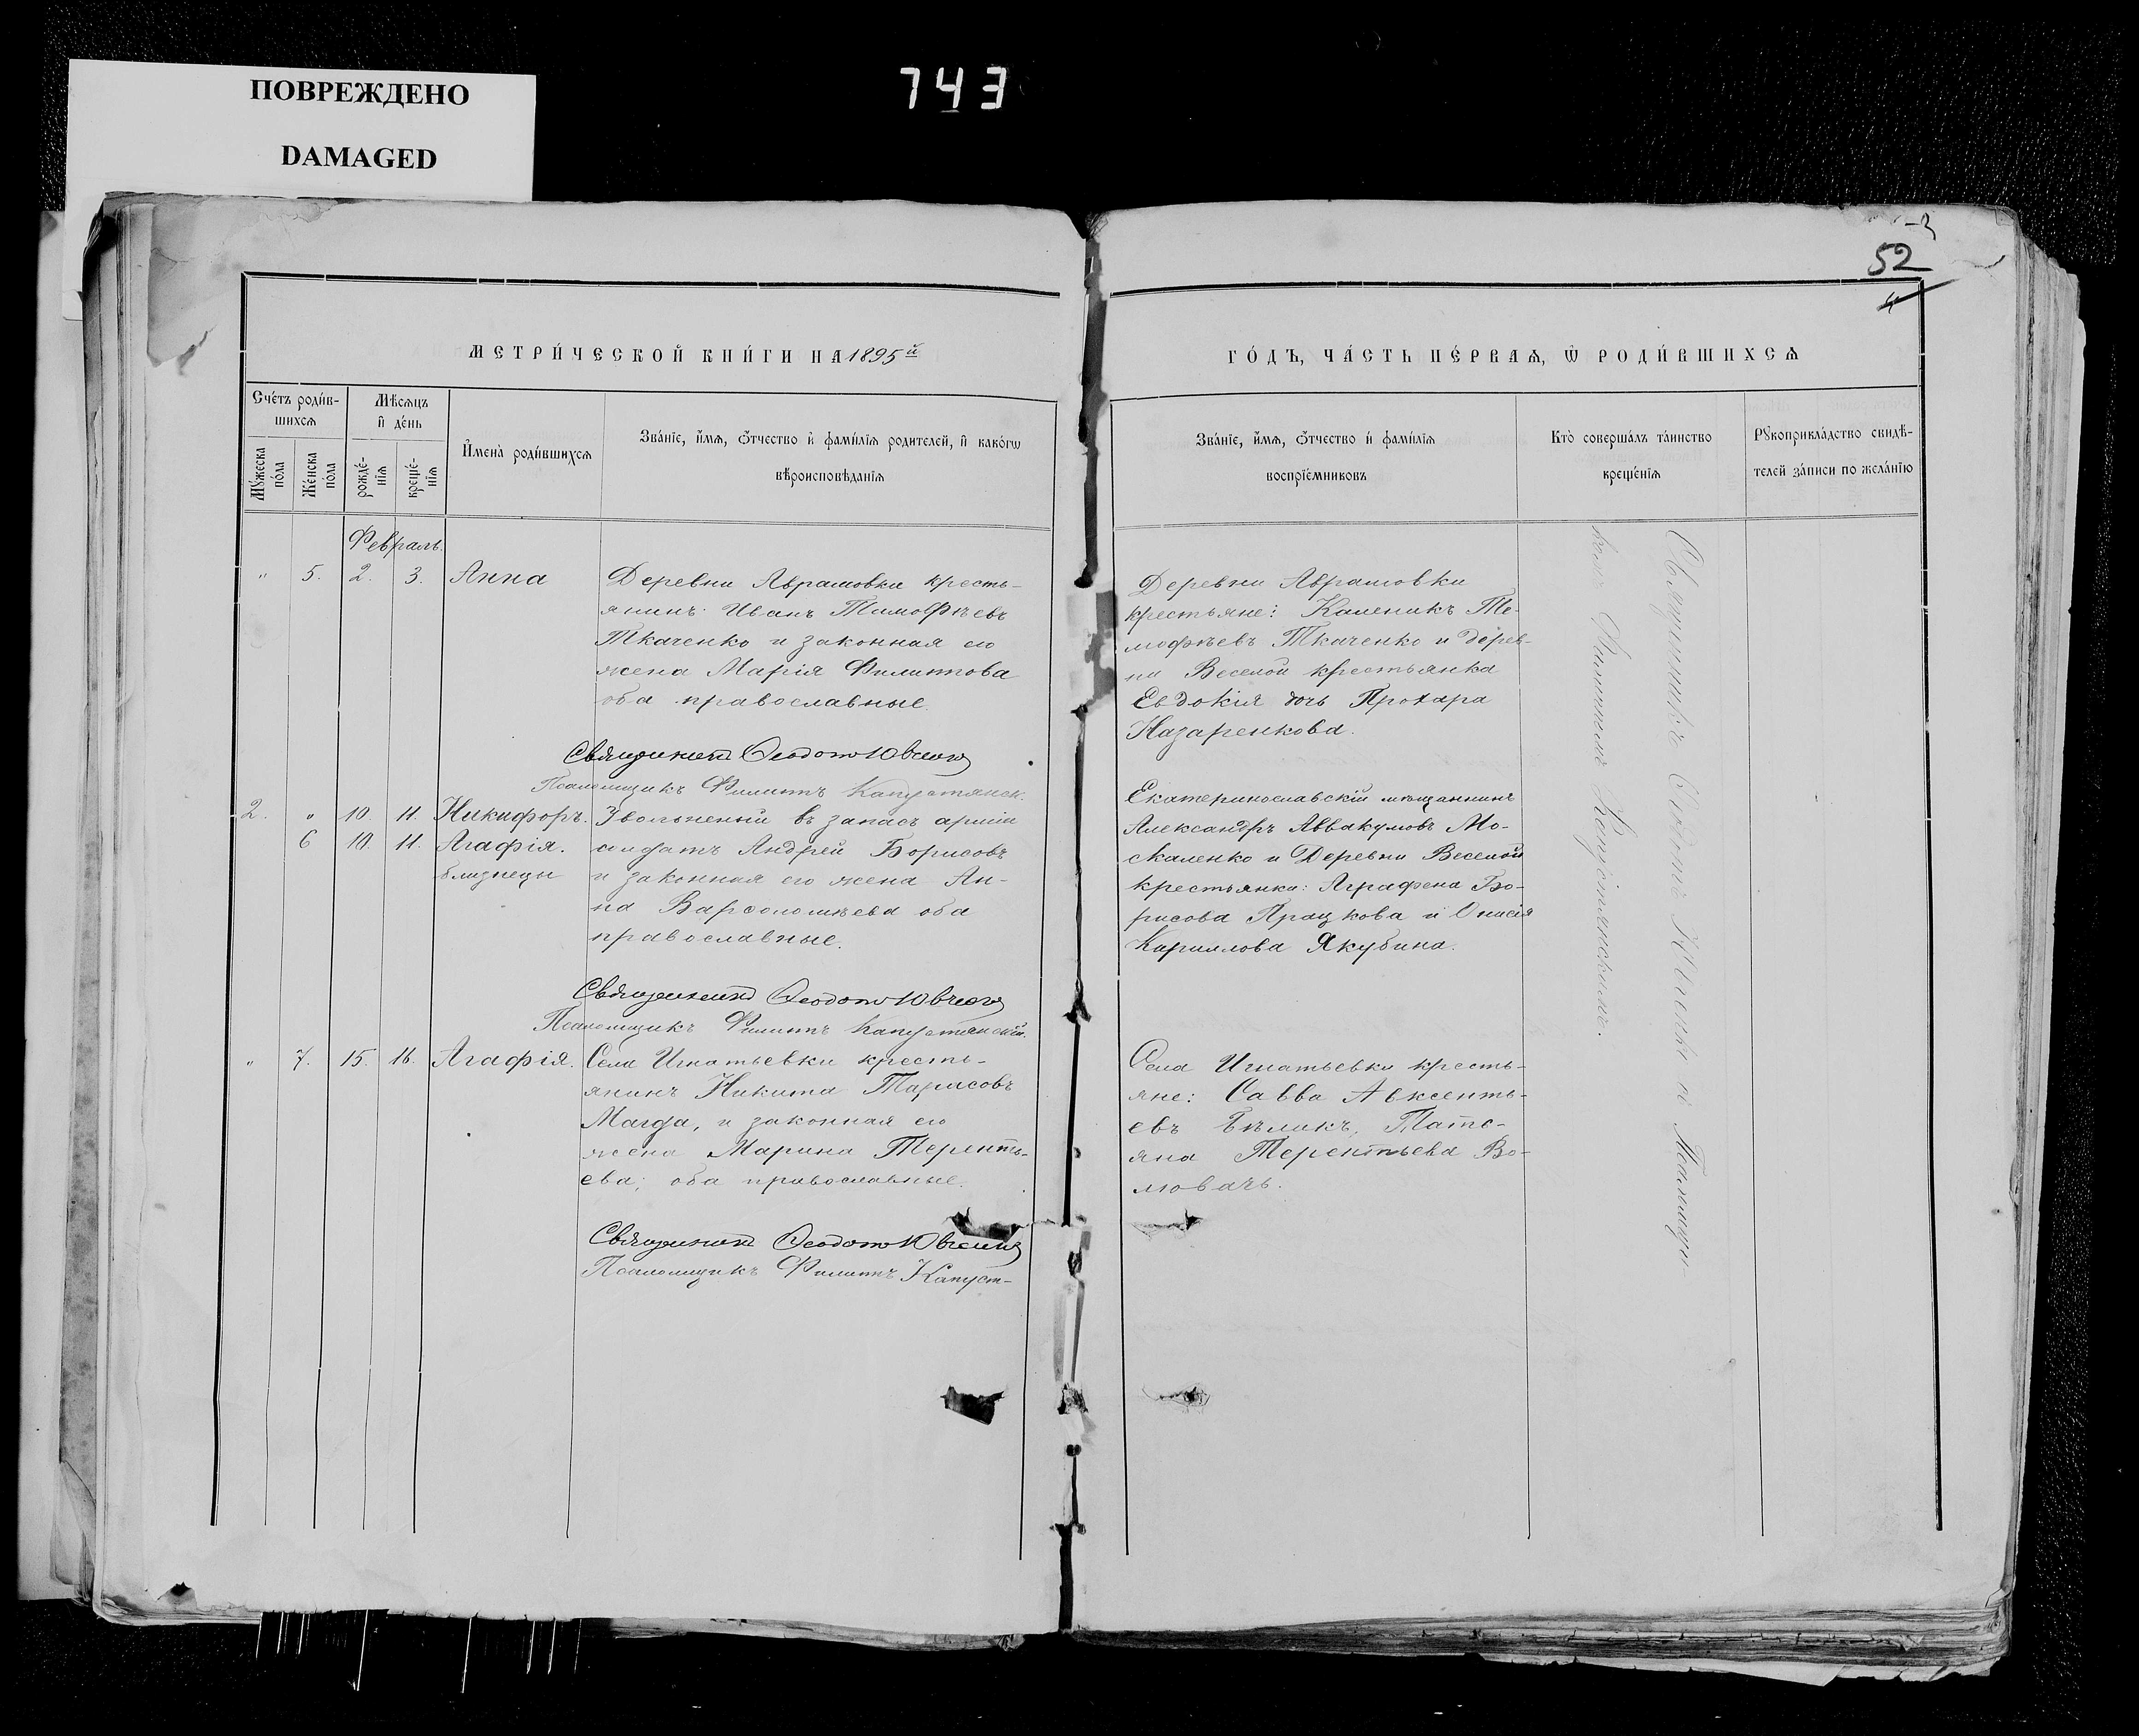 ПОВРЕЖДЕНО
DAMAGED
743
52
МЕТРИ́ЧЕСКОЙ КНИ́ГИ НА 1895й
ГО́ДЪ, ЧА́СТЬ ПЕ́РВАѦ, Ѡ҆ РОДИ́ВШИХСѦ
Сче́тъ роди́в-
шихсѧ
Мꙋ́жеска
по́ла
Же́нска
по́ла
Мѣ́сѧцъ
и҆ де́нь
рожде́-
нїѧ
креще́-
нїѧ
И҆мена̀ роди́вшихсѧ
Зва́нїе, и҆́мѧ, ѻ҆́тчество и҆ фами́лїѧ роди́телей, и҆ како́гѡ
вѣроисповѣ́данїѧ
Зва́нїе, и҆́мѧ, ѻ҆́тчество и҆ фами́лїѧ
воспрїе́мниковъ
Кто̀ соверша́лъ та́инство
креще́нїѧ
Рꙋкоприкла́дство свидѣ́-
телей за́писи по жела́нїю
Февраль.
" 5. 2. 3. Анна
Деревни Аврамовки кресть-
янинъ: Иванъ Тимофѣевъ
Ткаченко и законная его
жена Марія Филиппова
оба православные.
Священникъ Ѳеодотъ
Псаломщикъ Филиппъ Капустянск.
Деревни Аврамовки
крестьяне: Каленикъ Ти-
мофѣевъ Ткаченко и дерев-
ни Веселой крестьянка
Евдокія дочь Прохара
Назаренкова.
2. " 10. 11. Никифоръ.
6 10. 11. Агафія.
близнецы
Звольненый въ запасъ арміи
солдатъ Андрей Борисовъ
и законная его жена Ан-
на Варфоломѣева оба
православные.
Священникъ Ѳеодотъ
Псаломщикъ Филиппъ Капустянскій.
Екатеринославскій мѣщанинъ
Александръ Аввакумовъ Мо-
скаленко и Деревни Веселой
крестьянки: Аграфена Бо-
рисова Працкова и Онисія
Кириллова Якубина.
" 7. 15. 16. Агафія.
Села Игнатьевки кресть-
янинъ Никита Тарасовъ
Магда, и законная его
жена Марина Теренть-
ева; оба православные.
Священникъ Ѳеодотъ
Псаломщикъ Филиппъ Капуст-
Села Игнатьевки кресть-
яне: Савва Авксенть-
евъ Бѣликъ, Таті-
яна Терентьева Во-
ловачъ.
Священникъ Ѳеодотъ и Псаломщи-
комъ Филиппомъ Капустянскимъ.